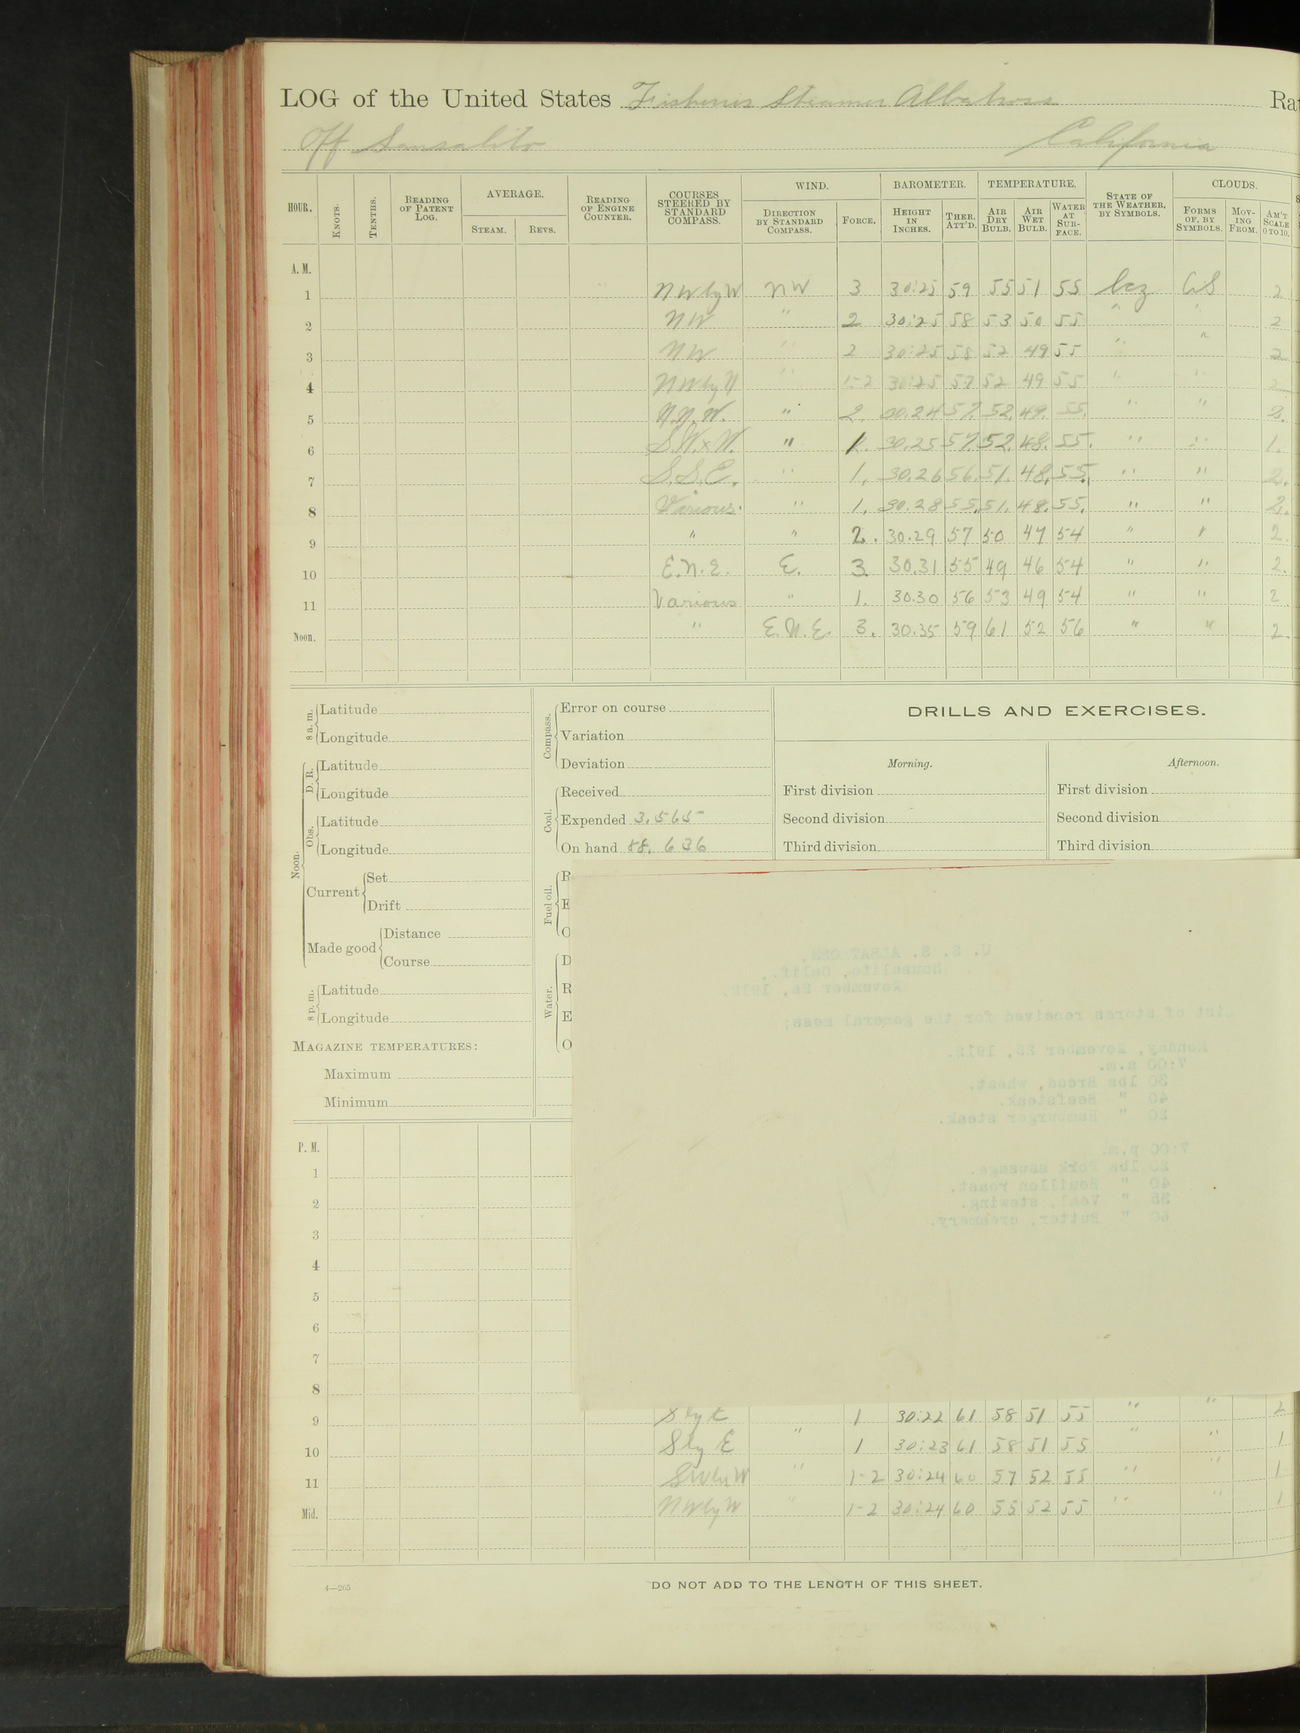 LOG of the United States Fisheries Steamer Albatross Ra
Off Sausalito California
HOUR. KNOTS. TENTHS. READING OF PATENT LOG. AVERAGE. STEAM. REVS. READING OF ENGINE COUNTER. COURSES STEERED BY STANDARD COMPASS. WIND. DIRECTION BY STANDARD COMPASS. FORCE. BAROMETER. HEIGHT IN INCHES. THER. ATT'D. TEMPERATURE. AIR DRY BULB. AIR WET BULB. WATER AT SURFACE. STATE OF THE WEATHER, BY SYMBOLS. CLOUDS. FORMS OF, BY SYMBOLS. MOVING FROM. AM'T SCALE 0 TO 10.
A. M.
1 NW by W NW 3 30:25 59 55 51 55 bcz 2
2 NW " 2 30:25 58 53 50 55 " " 2
3 NW " 2 30:25 58 52 49 55 " " 2
4 NW by N " 1-2 30:25 57 52 49 55 " "
5 N.N.W. " 2. 30.24 57. 52. 49. 55. " " 2.
6 S.W.xW. " 1. 30.25 57. 52. 48. 55. " " 1.
7 S.S.E. " 1. 30.26 56. 51. 48. 55. " " 2.
8 Various. " 1. 30.28 55. 51. 48. 55. " " 2.
9 " " 2. 30.29 57 50 47 54 " " 2.
10 E.N.E. E. 3. 30.31 55 49 46 54 " " 2.
11 Various " 1. 30.30 56 53 49 54 " " 2
Noon. " E.N.E. 3. 30.35 59 61 52 56 " " 2.
8 a. m. Latitude
Longitude
Noon. D. R. Latitude
Longitude
Obs. Latitude
Longitude
Current Set
Drift
Made good Distance
Course
8 p. m. Latitude
Longitude
MAGAZINE TEMPERATURES:
Maximum
Minimum
Compass. Error on course
Variation
Deviation
Coal. Received
Expended 3,565
On hand 88,636
Fuel oil. R
E
O
Water. D
R
E
O
DRILLS AND EXERCISES.
Morning. Afternoon.
First division First division
Second division Second division
Third division Third division
U. S. S. ALBATROSS,
Sausalito, Calif.,
November 25, 1912.
List of stores received for the general mess;
Monday, November 25, 1912.
7:00 a.m.
30 lbs Bread, wheat.
40 " Beefsteak.
20 " Hamburger steak.
7:00 p.m.
20 lbs Pork sausage.
40 " Bouillon roast.
35 " Veal, stewing.
60 " Butter, creamery.
P. M.
1
2
3
4
5
6
7
8
9 S by E 1 30:22 61 58 51 55 " " 2
10 S by E " 1 30:23 61 58 51 55 " " 1
11 SW by W " 1-2 30:24 60 57 52 55 " " 1
Mid. NW by W " 1-2 30:24 60 55 52 55 " " 1
4—265
DO NOT ADD TO THE LENGTH OF THIS SHEET.